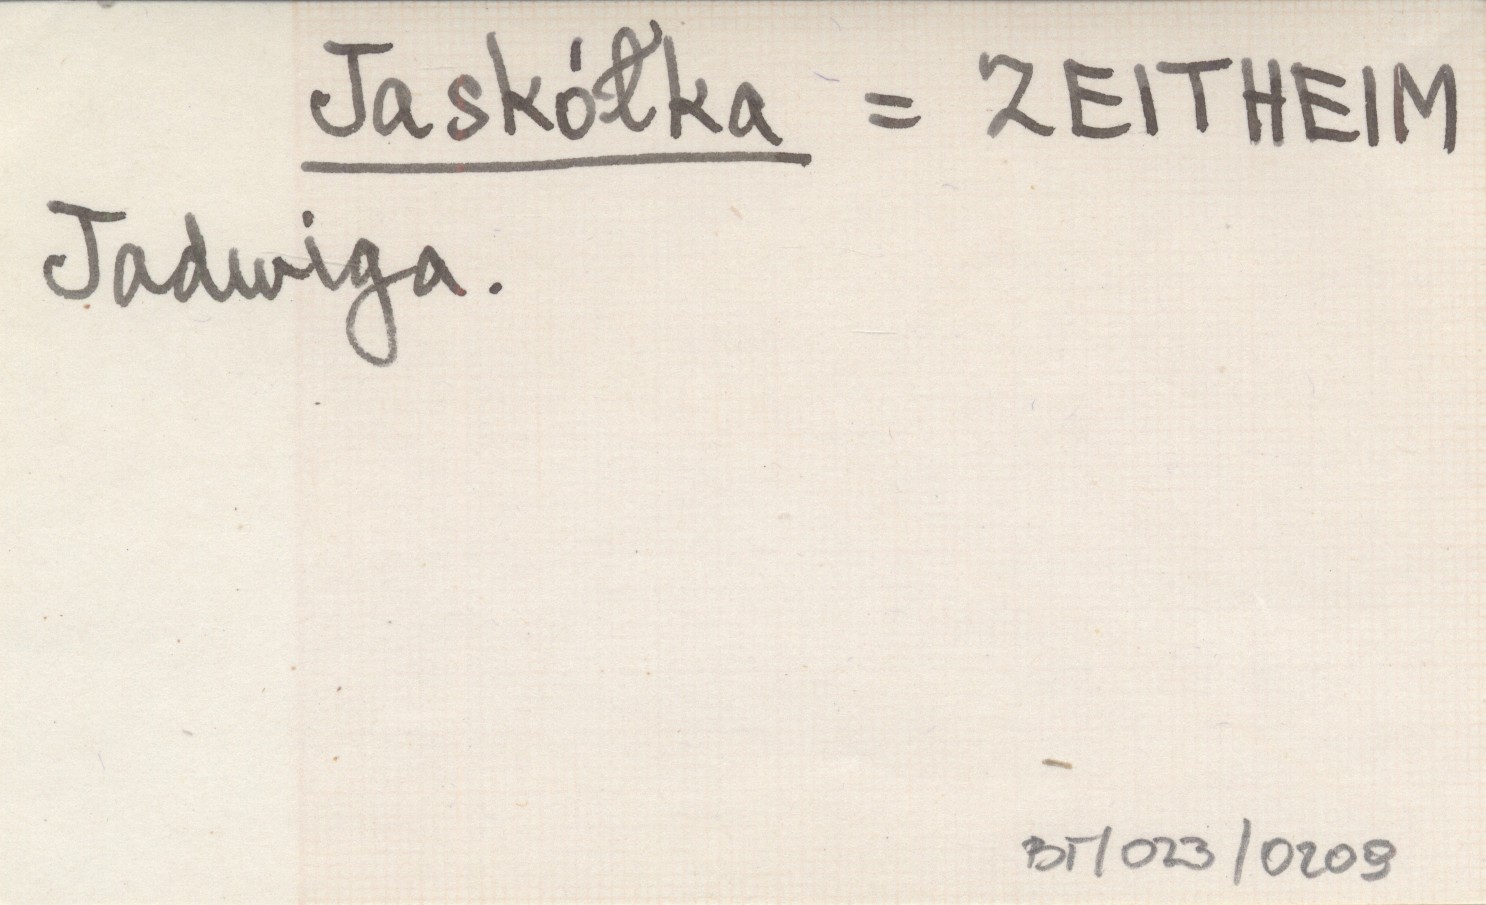 Jaskółka = ZEITHEIM
Jadwiga.
BT/023/0209